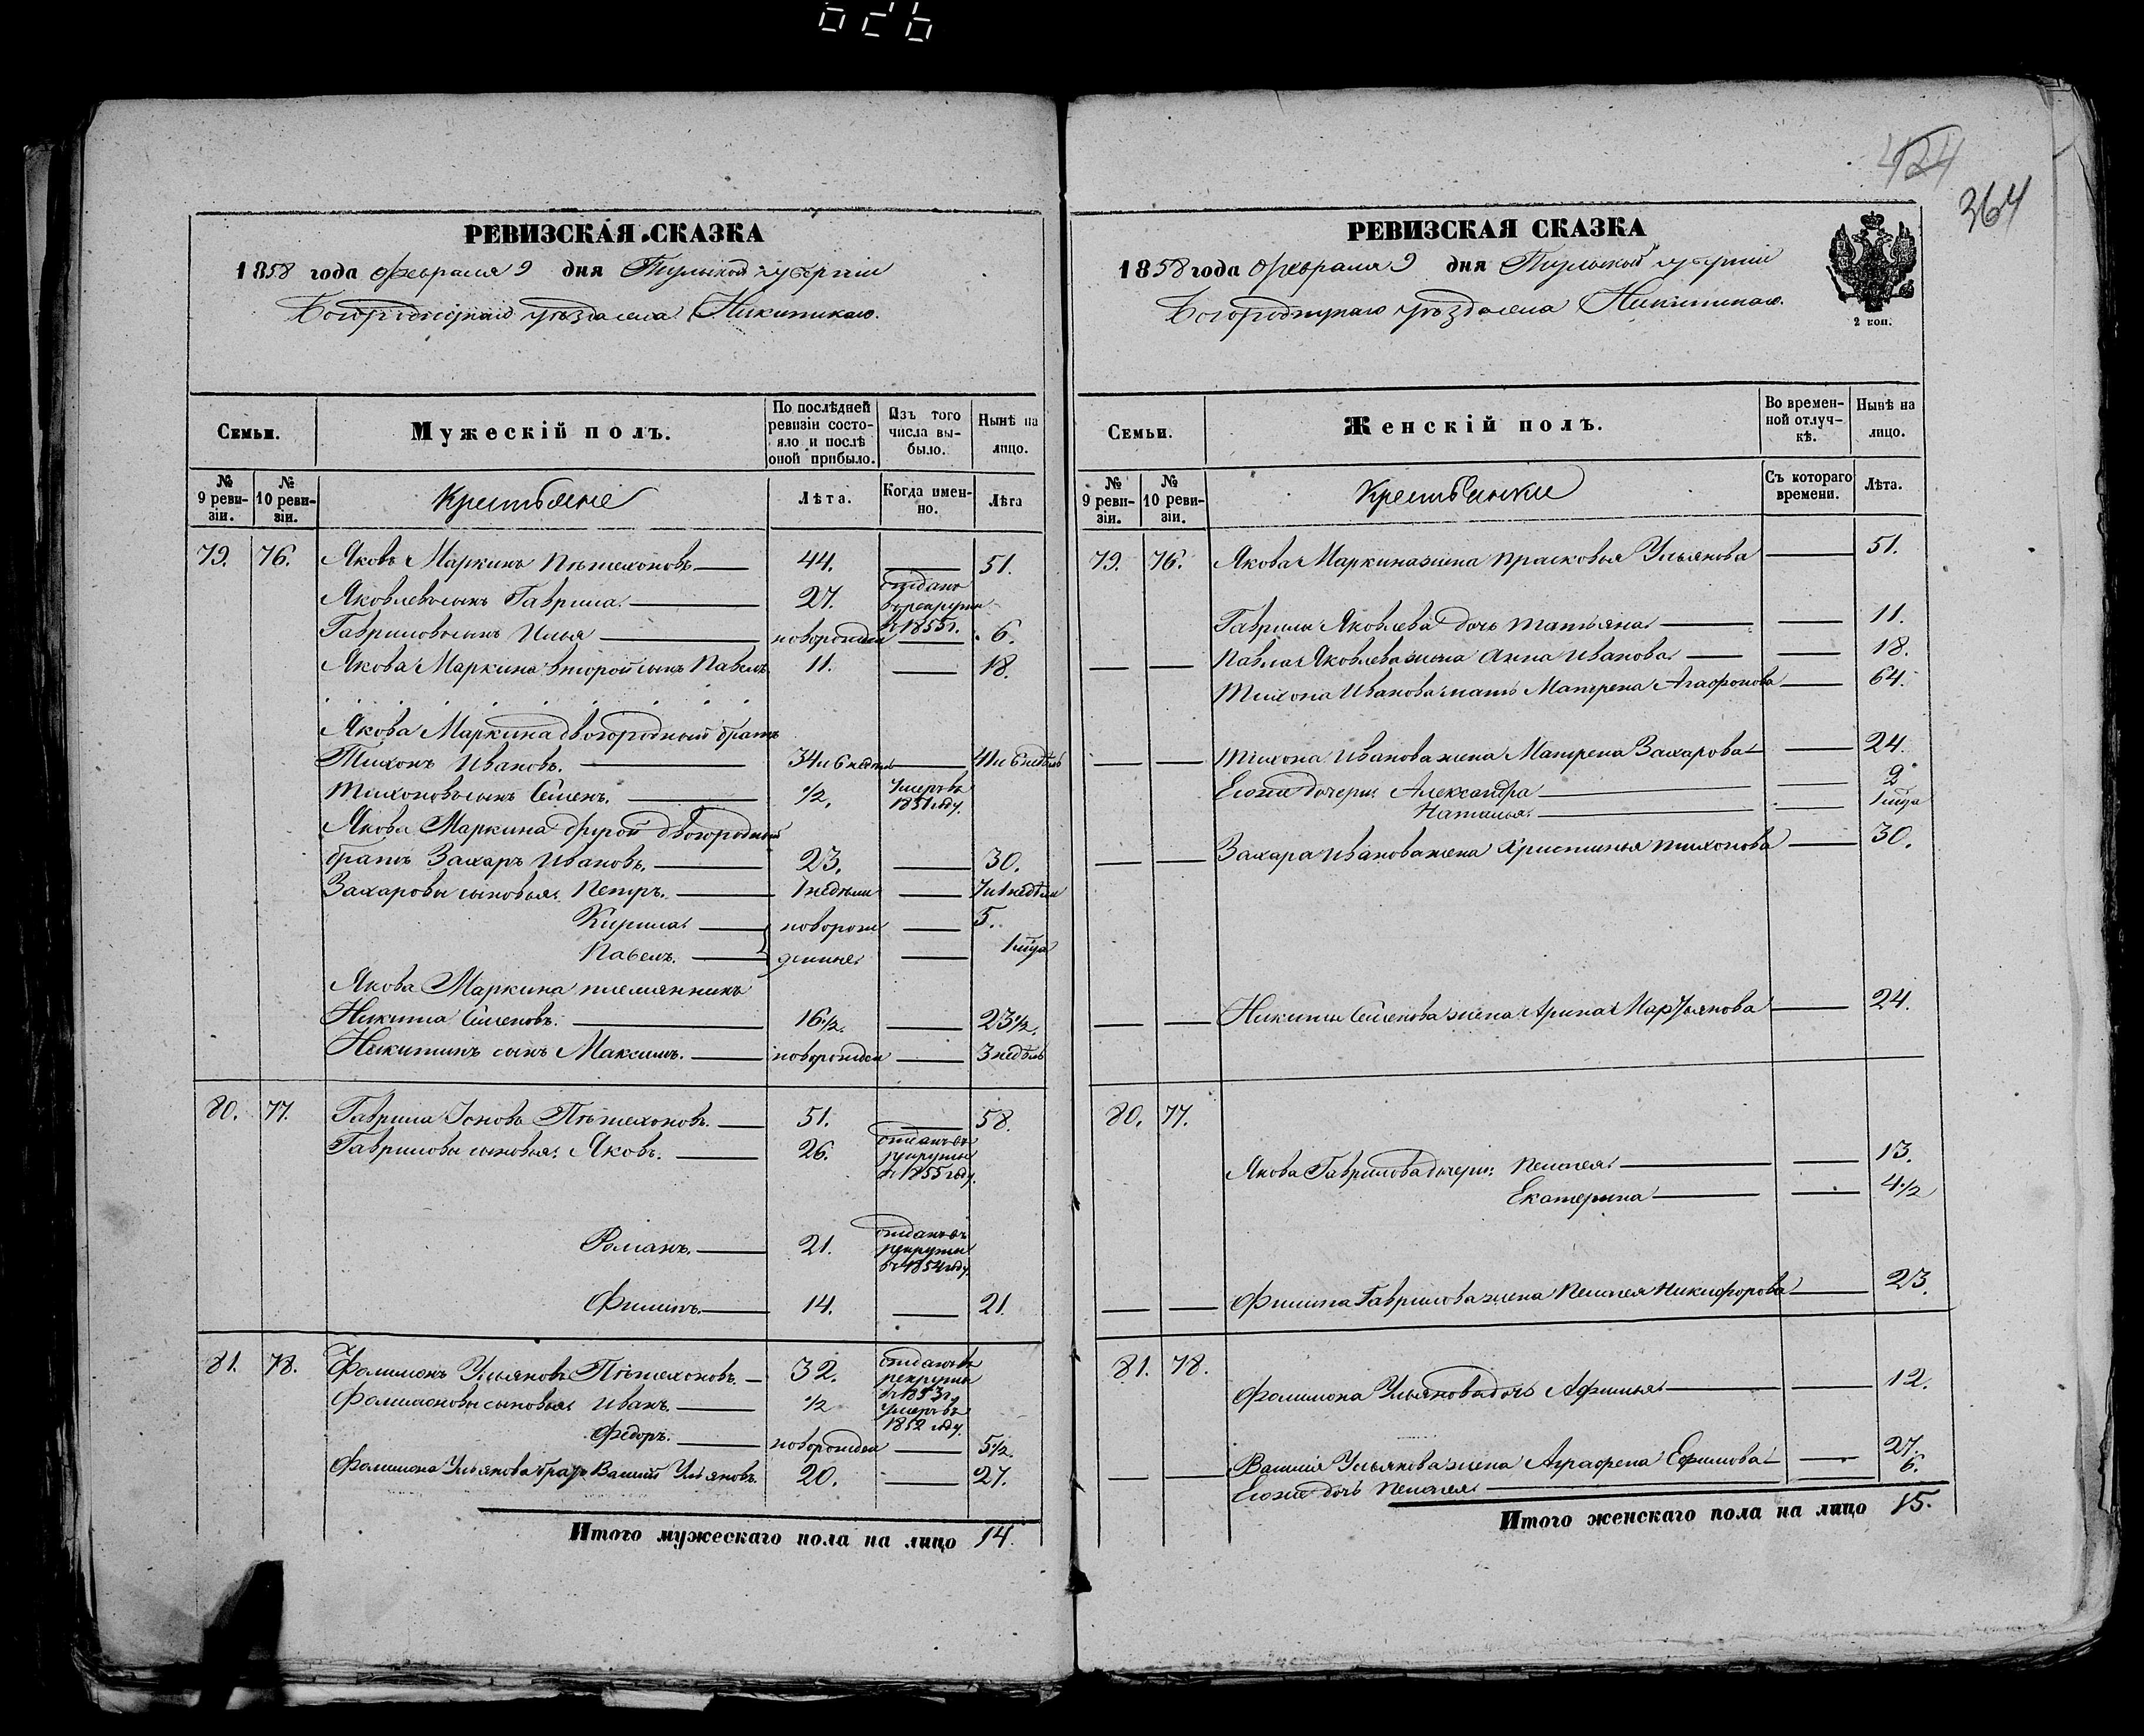 424
364
РЕВИЗСКАЯ СКАЗКА
1858 года февраля 9 дня Тульской губернiи
Богородицкаго уѣзда села Никитскаго.
Семьи.
Мужескiй полъ.
По послѣдней ревизiи состояло и послѣ оной прибыло.
Изъ того числа выбыло.
Нынѣ на лицо.
№ 9 ревизiи.
№ 10 ревизiи.
Крестьяне
Лѣта.
Когда именно.
Лѣта
79. 76. Яковъ Маркинъ Пѣтелоховъ 44. 51.
Яковлевъ сынъ Гаврила. 27. отданъ въ рекруты въ 1855 г.
Гавриловъ сынъ Илья новорожден 6.
Якова Маркина второй сынъ Павелъ 11. 18.
Якова Маркина двоюродный братъ
Тихонъ Ивановъ. 34 и 6 недель 41 и 6 недѣль
Тихоновъ сынъ Семенъ. 1/2. Умеръ въ 1851 году.
Якова Маркина другой двоюродный
братъ Захаръ Ивановъ. 23. 30.
Захаровы сыновья Петръ. 1 недѣли 7 и 1 недѣли
Кирила новорож 5.
Павелъ. денные 1 мѣца
Якова Маркина племянникъ
Никита Семеновъ. 16 1/2. 23 1/2.
Никитинъ сынъ Максимъ. новорожден 3 недѣль
80. 77. Гаврила 51. 58.
Гавриловы сыновья Яковъ. 26. отданъ въ рекруты въ 1855 году.
Романъ. 21. отданъ въ рекруты въ 1854 году.
Филипъ. 14. 21.
81. 78. Фалимонъ Ульяновъ 32. отданъ въ рекруты въ 1853 г.
Фалимоновы сыновья Иванъ. 1/2 Умеръ въ 1852 году.
Федоръ. новорожден 5 1/2.
Фалимона Ульянова братъ Василий Ульяновъ. 20. 27.
Итого мужескаго пола на лицо 14.
РЕВИЗСКАЯ СКАЗКА
1858 года февраля 9 дня Тульской губернiи
Богородицкаго уѣзда села Никитскаго.
2 коп.
Семьи.
Женскiй полъ.
Во временной отлучкѣ.
Нынѣ на лицо.
№ 9 ревизiи.
№ 10 ревизiи.
Крестьянки
Съ котораго времени.
Лѣта.
79. 76. Якова Маркина жена Прасковья Ульянова 51.
Гаврилы Яковлева дочь Татьяна 11.
Павла Яковлева жена Анна Иванова 18.
Тихона Иванова мать Матрена Агафонова 64.
Тихона Иванова жена Матрена Захарова 24.
Егожа дочери Александра 2
Наталья 1 мѣца
Захара Иванова жена Христинья Тихонова 30.
Никиты Семенова жена Арина 24.
80. 77.
Якова Гаврилова дочери: Пелагея 13.
Екатерина 4 1/2
Филипа Гаврилова жена Пелагея Никифорова 23.
81. 78.
Фалимона Ульянова дочь Афимья 12.
Василия Ульянова жена Аграфена Ефимова 27.
Егожа дочь Пелагея 6.
Итого женскаго пола на лицо 15.